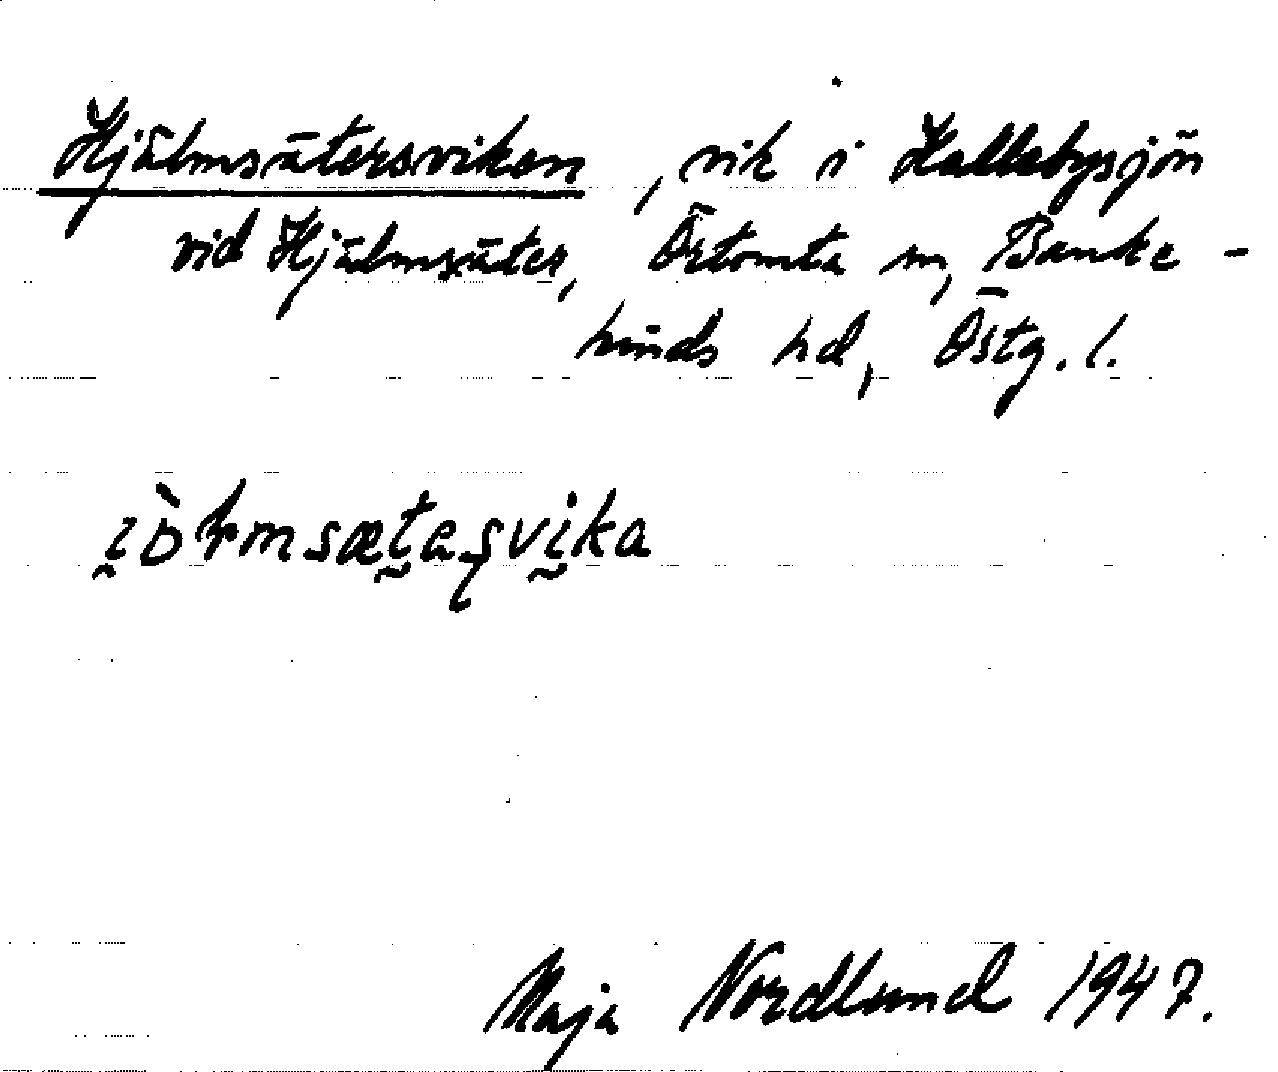 Hjälmsätersviken, vik i Hällebysjön
vid Hjälmsäter, Örtomta sn, Banke-
kinds hd, Östg. l.
Maja Nordlund 1947.